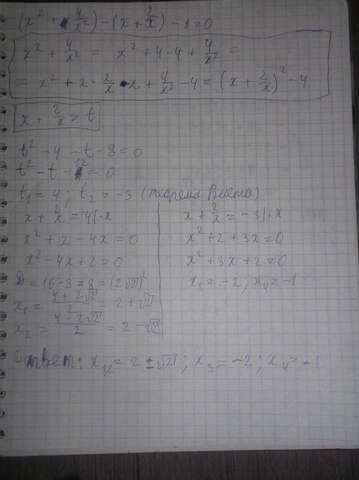 (x² + 4/x²) - (x + 2/x) - 8 = 0
x² + 4/x² = x² + 4 - 4 + 4/x² =
= x² + 2 · 2/x · x + 4/x² - 4 = (x + 2/x)² - 4
x + 2/x = t
t² - 4 - t - 8 = 0
t² - t - 12 = 0
t₁ = 4; t₂ = -3 (теорема Виета)
x + 2/x = 4 | · x
x² + 2 - 4x = 0
x² - 4x + 2 = 0
D = 16 - 8 = 8 = (2√2)²
x₁ = (4 + 2√2)/2 = 2 + √2
x₂ = (4 - 2√2)/2 = 2 - √2
x + 2/x = -3 | · x
x² + 2 + 3x = 0
x² + 3x + 2 = 0
x₃ = -2, x₄ = -1
Ответ: x₁,₂ = 2 ± √2; x₃ = -2; x₄ = -1